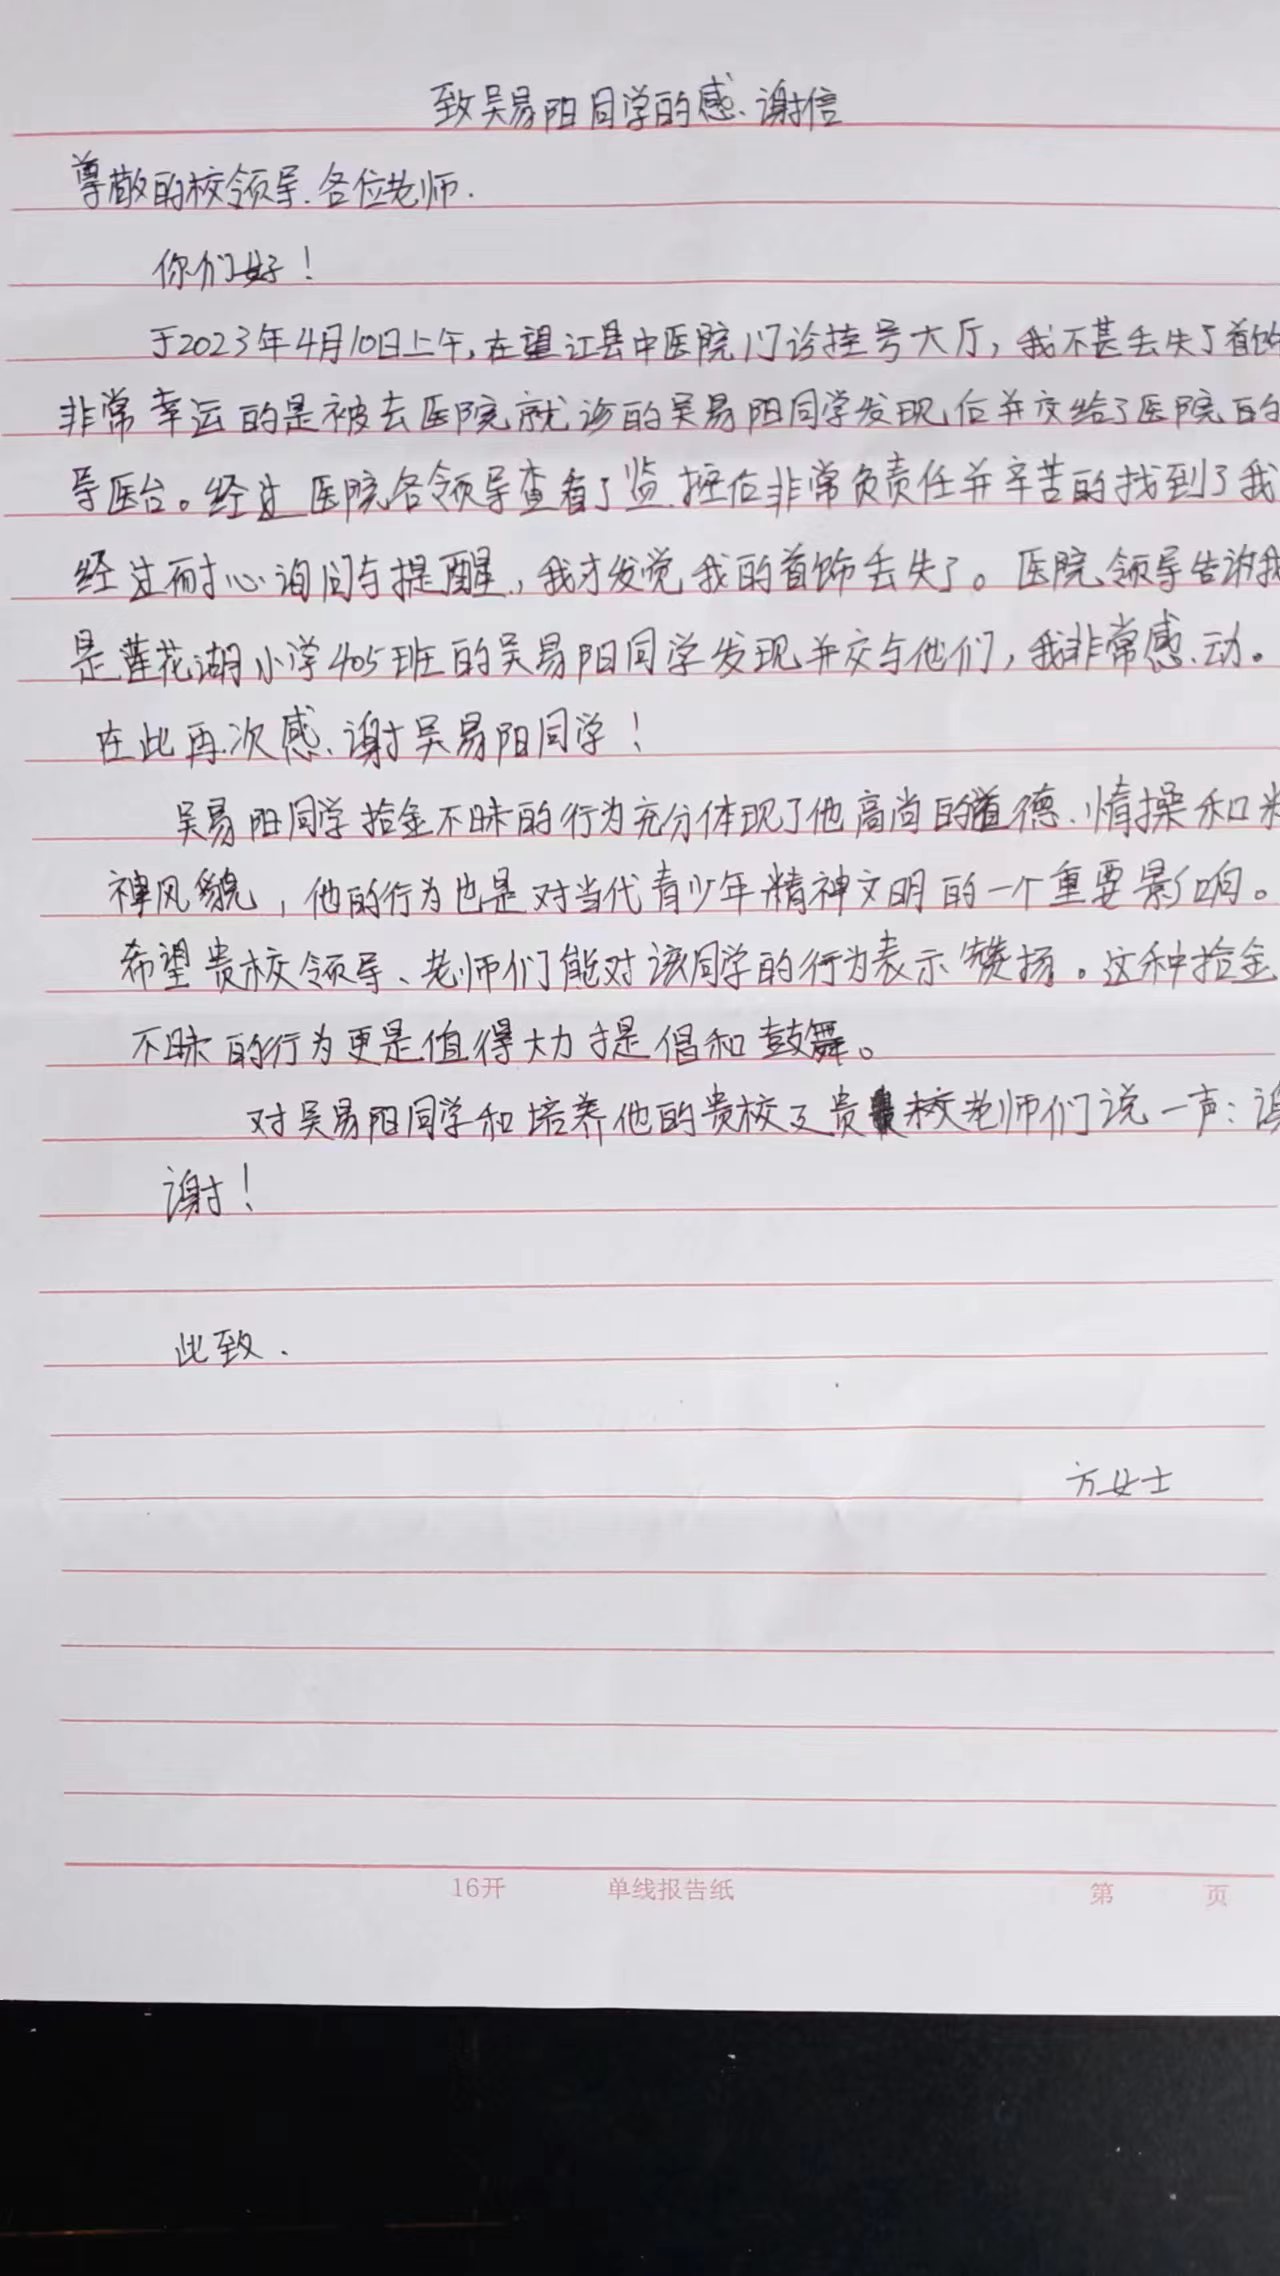 致吴易阳同学的感谢信
尊敬的校领导.各位老师.
你们好！
于2023年4月10日上午,在望江县中医院门诊挂号大厅,我不甚丢失了首饰
非常幸运的是被去医院就诊的吴易阳同学发现后并交给了医院的
导医台。经过医院各领导查看了监控后非常负责任并辛苦的找到了我
经过耐心询问与提醒,我才发觉我的首饰丢失了。医院领导告诉我
是莲花湖小学405班的吴易阳同学发现并交与他们,我非常感动。
在此再次感谢吴易阳同学！
吴易阳同学拾金不昧的行为充分体现了他高尚的道德情操和精
神风貌,他的行为也是对当代青少年精神文明的一个重要影响。
希望贵校领导、老师们能对该同学的行为表示赞扬。这种拾金
不昧的行为更是值得大力提倡和鼓舞。
对吴易阳同学和培养他的贵校及贵校老师们说一声:谢
谢！
此致.
方女士
16开 单线报告纸 第 页